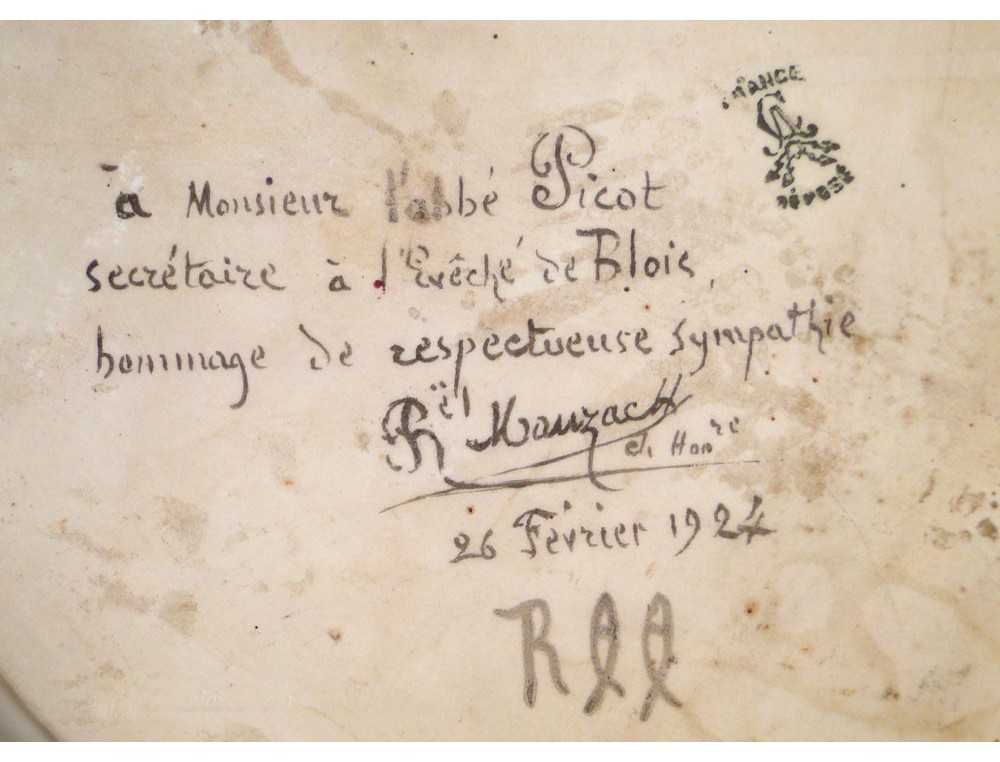 FRANCE
DÉPOSÉ
à Monsieur l'abbé Picot
secrétaire à l'Evêché de Blois,
hommage de respectueuse sympathie
Rël
ch. Honre
26 Février 1924